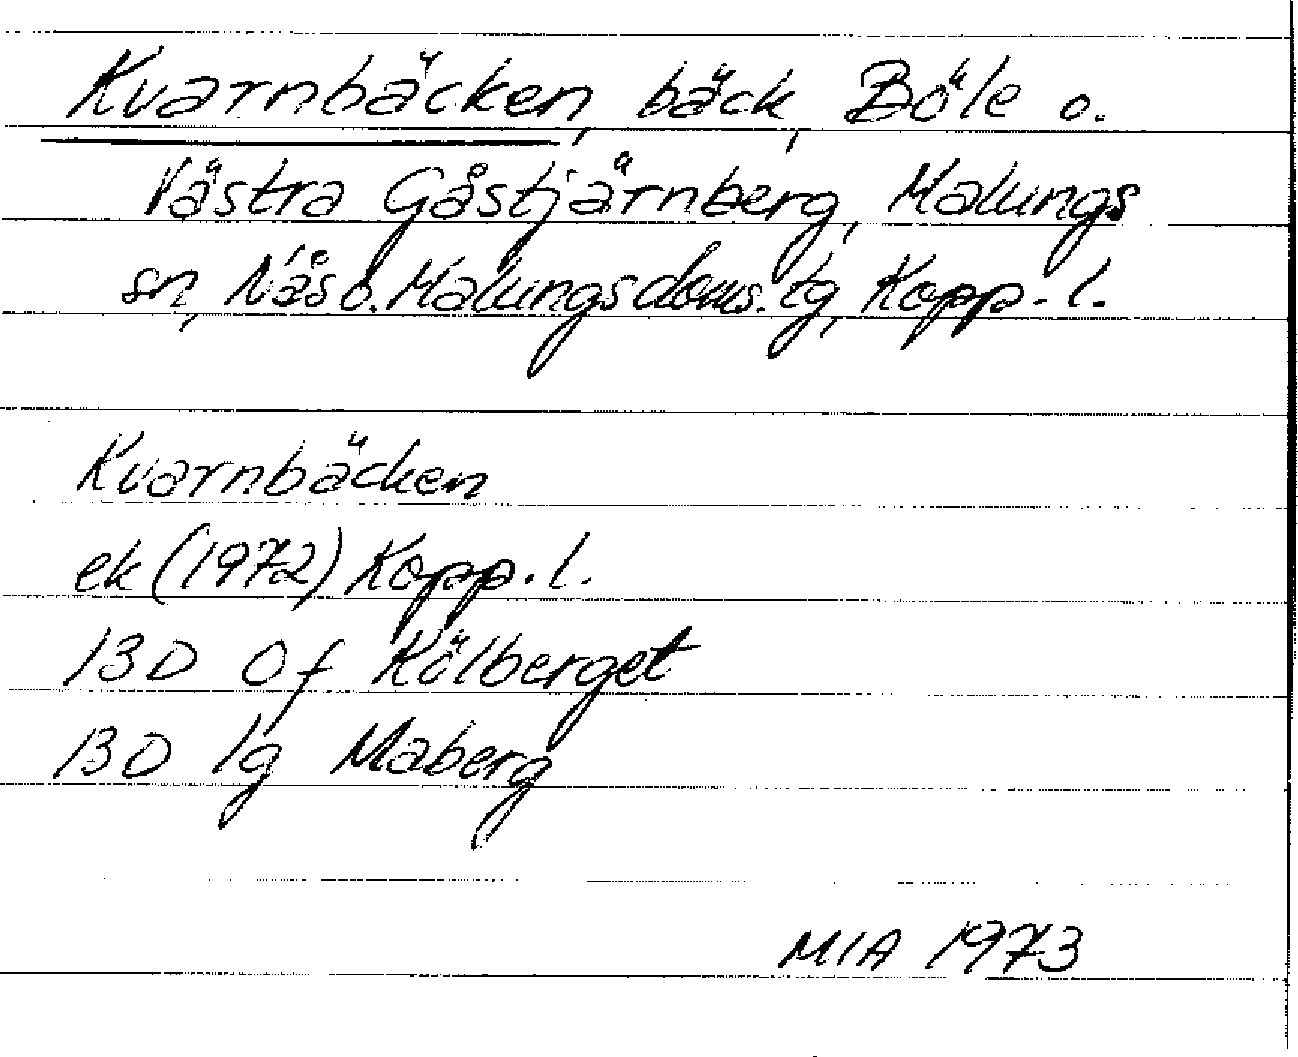 Kvarnbäcken, bäck, Böle o.
Västra Gåstjärnberg, Malungs
sn, Nås o. Malungs doms. tg, Kopp. l.
Kvarnbäcken
ek (1972) Kopp. l.
13D 0f Kölberget
13D 1g Maberg
MIA 1973